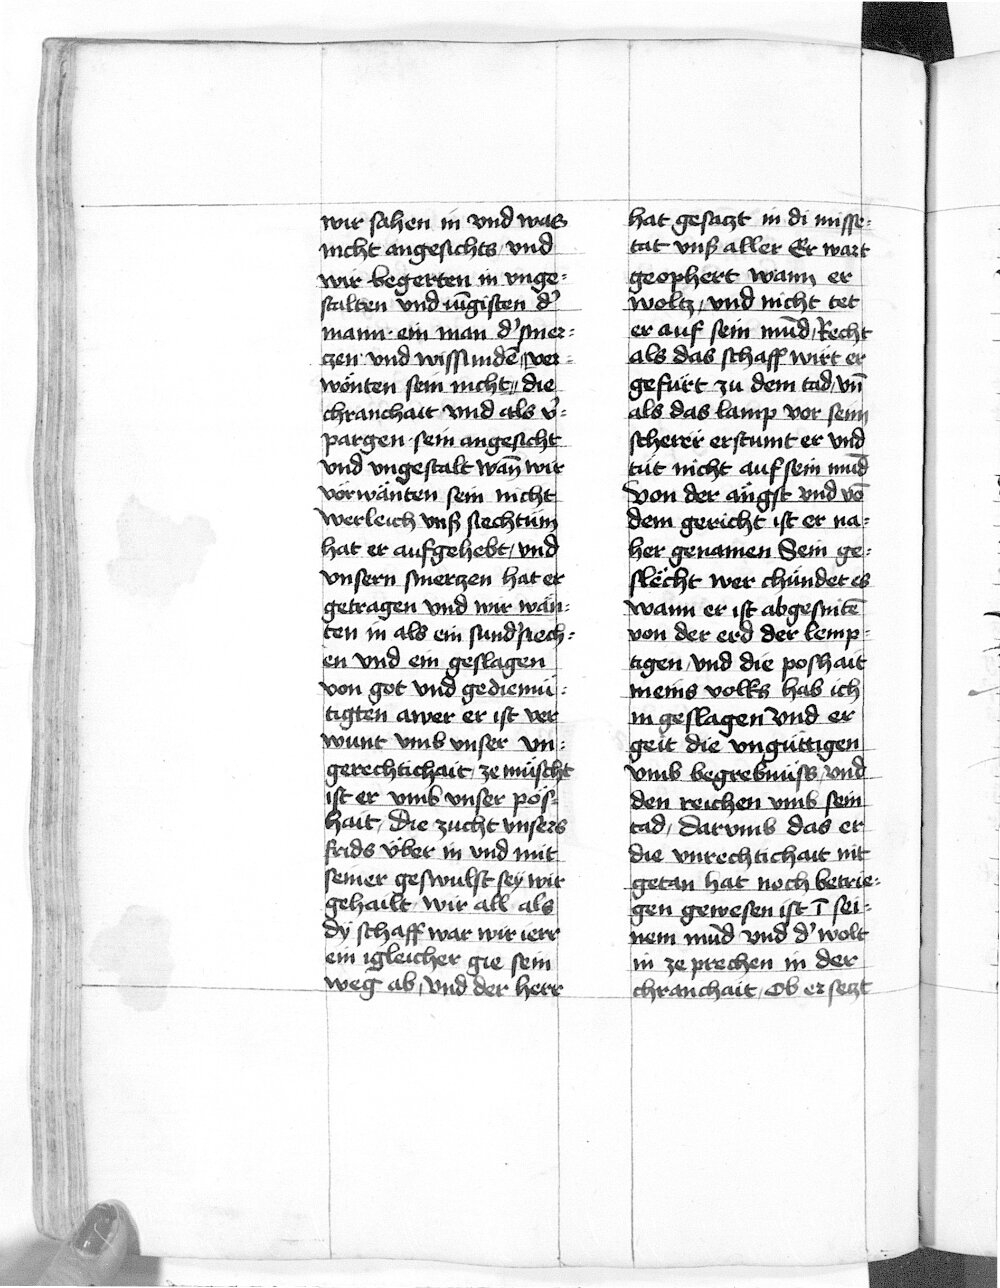 wir sahen in vnd was
nicht angesichts vnd
wir begerten in vnge-
stalten vnd iu̅gisten d'
mann ein man d' smer-
czen vnd wissunde̅ ver-
wönten sein nicht die
chranchait vnd als v'-
pargen sein angesicht
vnd vngestalt wan̅ wir
vörwänten sein nicht
werleich vnß siechtum
hat er aufgehebt vnd
vnsern smerczen hat er
getragen vnd wir wän-
ten in als ein sund'siech-
en vnd ein geslagen
von got vnd gediemü-
tigten awer er ist ver
wunt vmb vnser vn-
gerechtichait ze müscht
ist er vmb vnser pös-
hait / Die zucht vnsers
frids über in vnd mit
seiner geswulst sey wir
gehailt wir all als
dy schaff war wir ierr
ein igleicher gie sein
weg ab / vnd der herr
hat gesaczt in di misse-
tat vnß aller Er wart
geophert wann er
woltz / vnd nicht tet
er auf sein mu̅d / Recht
als das schaff wirt er
gefürt zu dem tad / vn̅
als das lamp vor seim
scherer erstumt er vnd
tüt nicht auf sein mu̅d
Von der ängst vnd vo̅
dem gericht ist er na-
her genamen Sein ge-
slëcht wer chündet es
wann er ist abgesnite̅
von der erd der lemp-
tigen / vnd die poshait
meins volks hab ich
in geslagen Vnd er
geit die vngüttigen
vmb begrebnüss / vnd
den reichen vmb sein
tad / Darvmb das er
die vnrechtichait nit
getan hat noch betrie-
gen gewesen ist i̅ sei-
nem mu̅d vnd d' wolt
in ze prechen in der
chranchait / Ob er seczt